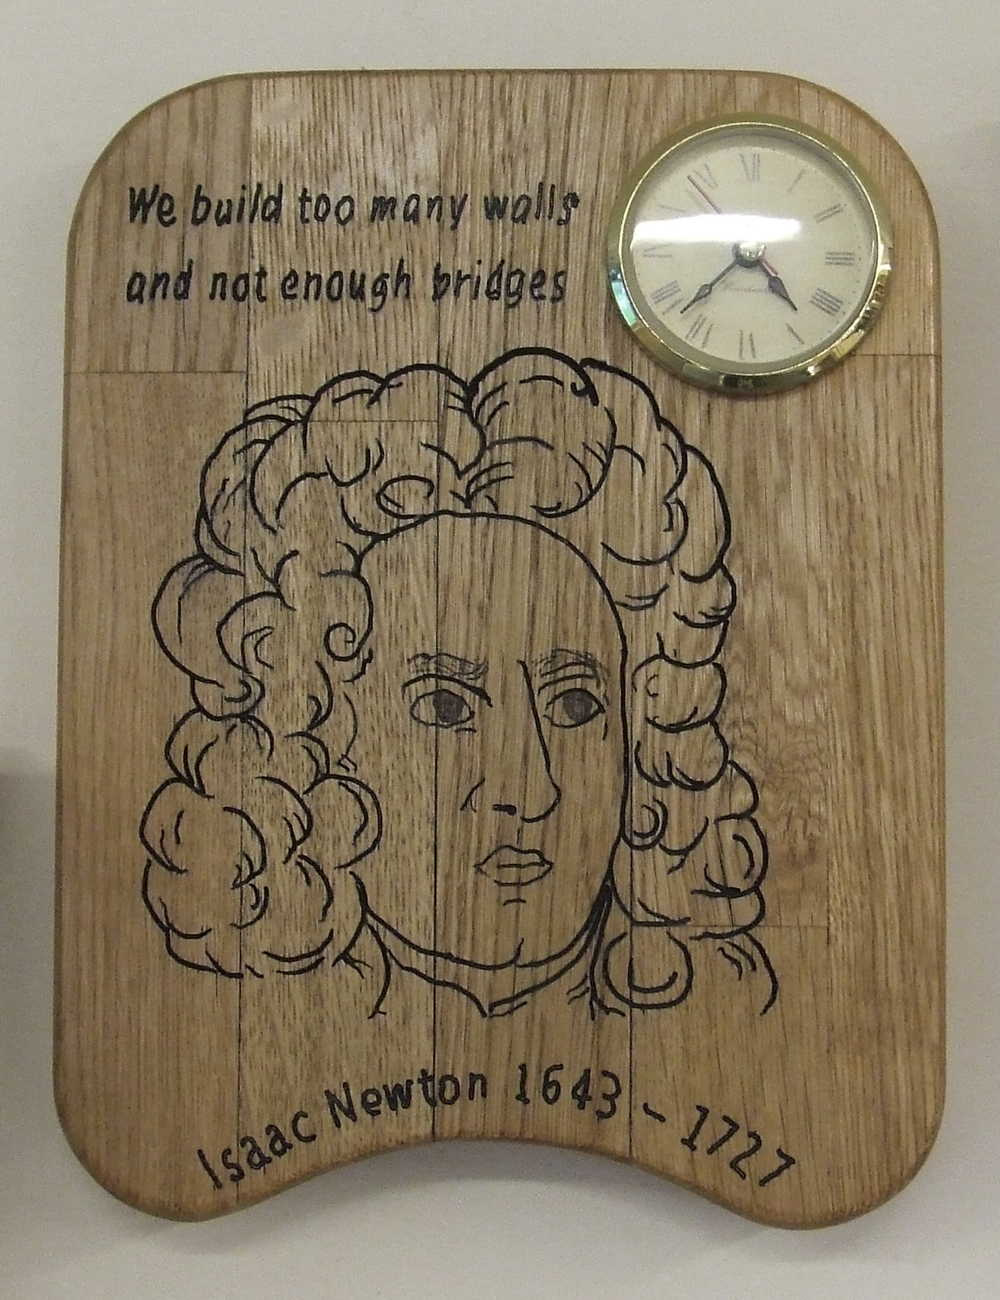 We build too many walls
and not enough bridges
Isaac Newton 1643 - 1727